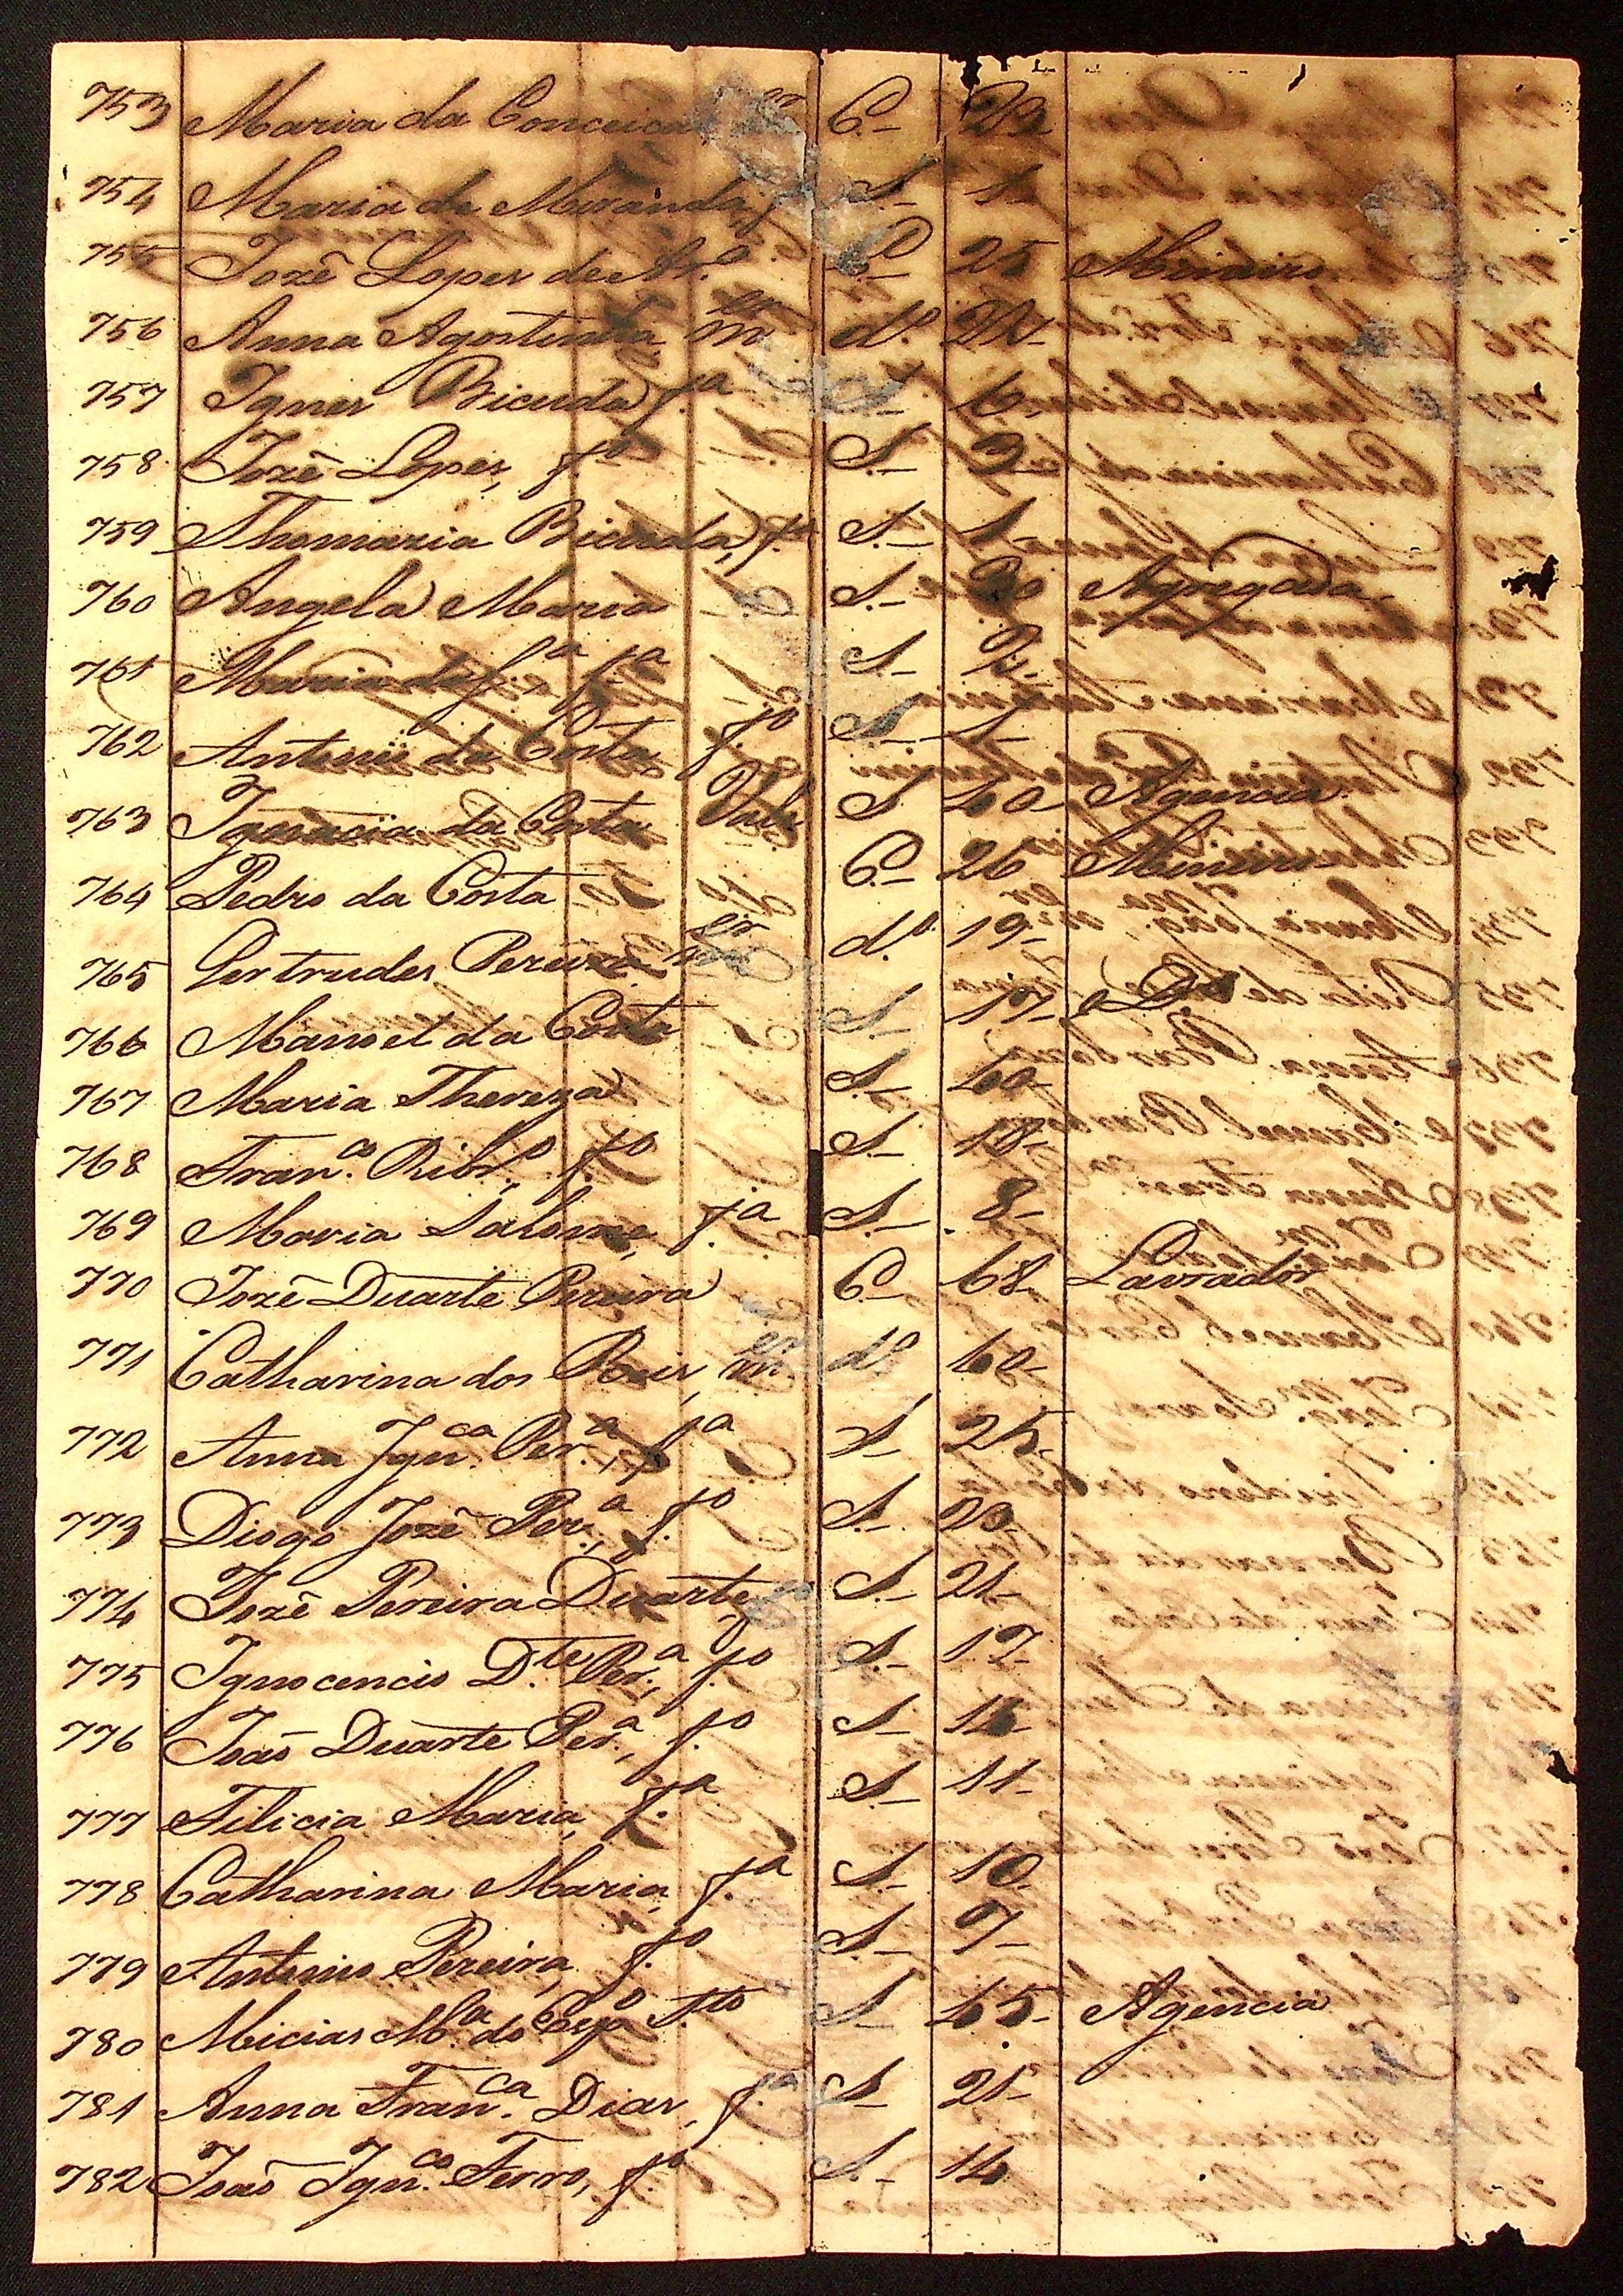 753 Maria da Conceicaõ m.er C.- 23
754 Maria de Miranda f.a S.- 1-
755 Jozê Lopes de Ar.o C.- 25 Mineiro
756 Anna Agostinha, m.er d.o 22-
757 Ignes Bicuda, f.a S.- 6-
758 Jozê Lopes, f.o S.- 2-
759 Thomazia Bicuda, f.a S.- 1-
760 Angela Maria S.- 30 Agregada
761 Maria f.a S- 2-
762 Antonio da Costa f.o S.- 1-
763 Ignacia da Costa S. 40- Agencia
764 Pedro da Costa C.- 26 Mineiro
765 Gertrudes Pereira m.er d.o 19-
766 Manoel da Costa S.- 17- D.o
767 Maria Thereza S.- 40-
768 Fran.co Ribr.o f.o S.- 18-
769 Maria Salome, f.a S.- 8-
770 Jozê Duarte Pereira C.- 68- Lavrador
771 Catharina dos Reis, m.er d.o 40-
772 Anna Ign.ca Per.a, f.a S- 25-
773 Diogo Jozê Per.a, f.o S.- 23-
774 Jozê Pereira Duarte, f.o S.- 21-
775 Ignocencio D.te Per.a, f.o S.- 17-
776 Joaõ Duarte Per.a, f.o S- 14-
777 Filicia Maria, f.a S.- 11-
778 Catharina Maria, f.a S.- 10-
779 Antonio Pereira, f.o S.- 7-
780 Micias M.a do Esp.o S.to S- 45- Agencia
781 Anna Fran.ca Dias, f.a S- 21-
782 Joaõ Ign.co Ferro, f.o S.- 14